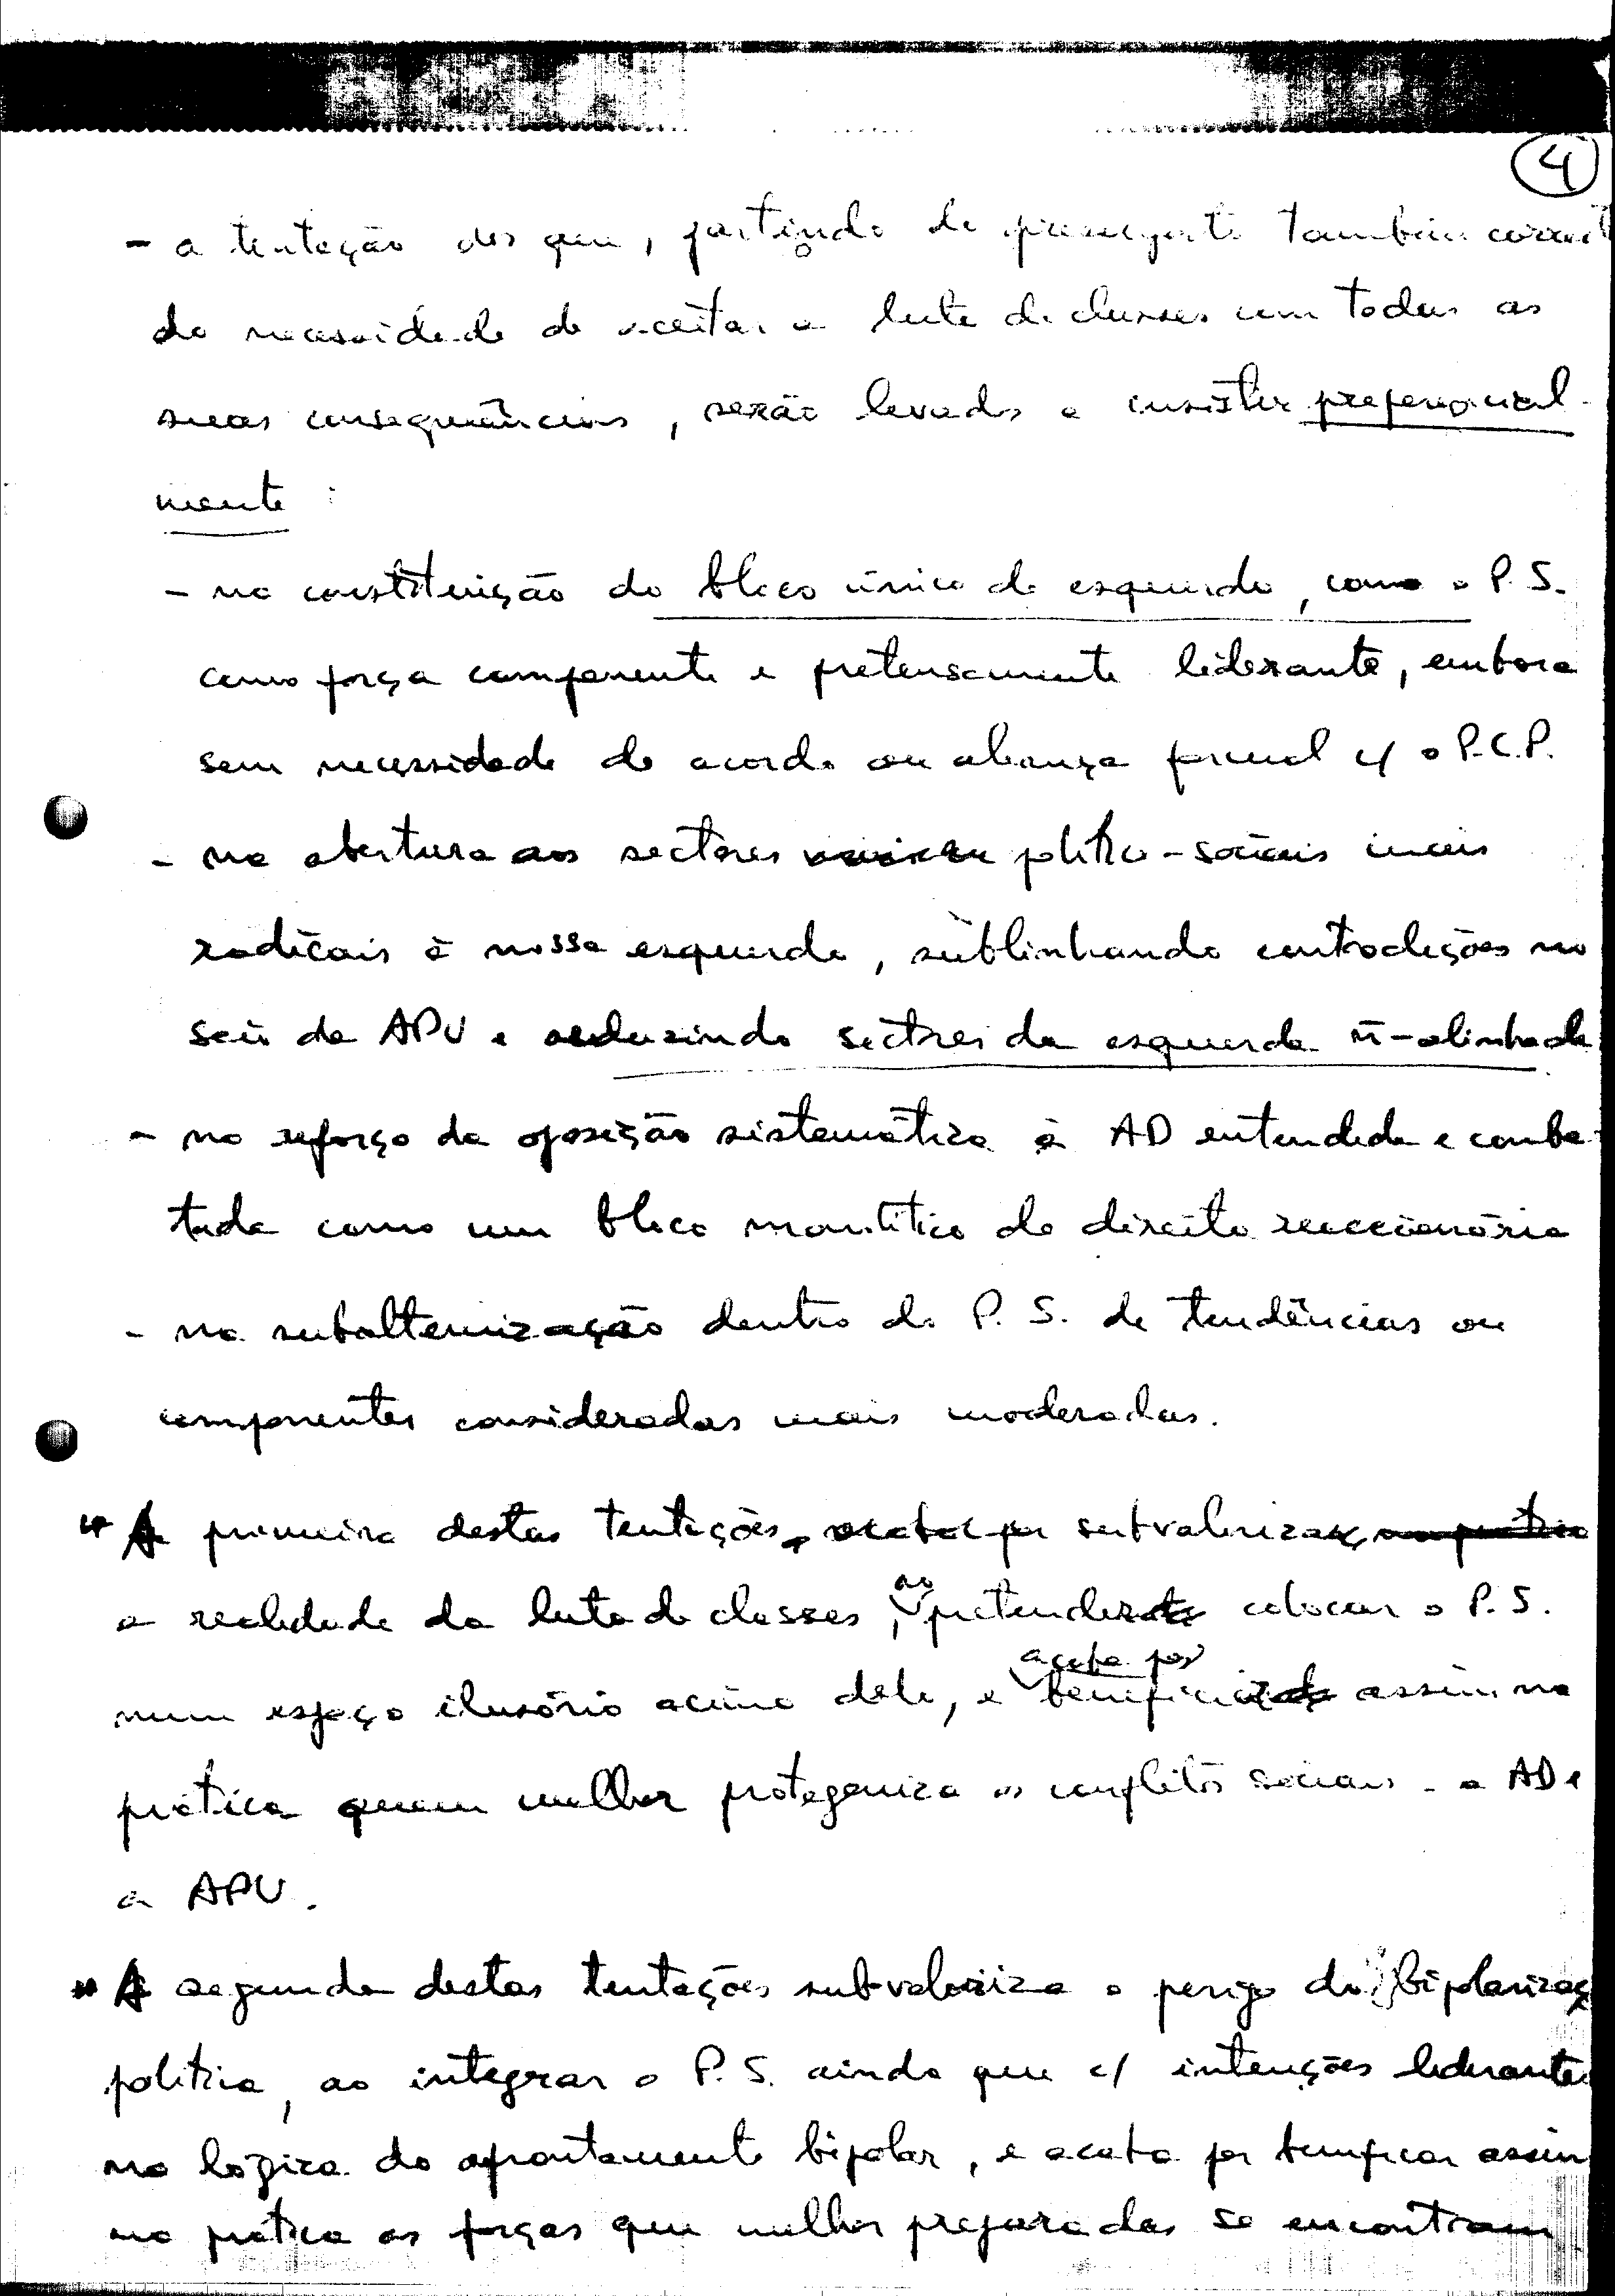 4
- a tentação dos que, partindo do pressuposto também correct
da necessidade de aceitar a luta de classes com todas as
suas consequências, serão levados a insistir preferencial-
mente :
- na constituição do bloco único de esquerda, como o P.S.
como força componente e pretensamente liderante, embora
sem necessidade de acordo ou aliança formal c/ o P.C.P.
- na abertura aos sectores politico-sociais mais
radicais à nossa esquerda, sublinhando contradições no
seio da APU e seduzindo sectores da esquerda ñ-alinhada
- no reforço da oposição sistemática à AD entendida e comba-
tida como um bloco monolítico da direita reaccionária
- na subalternização dentro do P.S. de tendências ou
componentes consideradas mais moderadas.
A primeira destas tentações acaba por subvalorizar
a realidade da luta de classes, ao pretender colocar o P.S.
num espaço ilusório acima dela, e acaba por beneficiar assim na
prática quem melhor protagoniza os conflitos sociais - a AD e
a APU.
A segunda destas tentações subvaloriza o perigo da bipolarizaç
politica, ao integrar o P.S. ainda que c/ intenções liderantes
na lógica do afrontamento bipolar, e acaba por beneficiar assim
na prática as forças que melhor preparadas se encontram